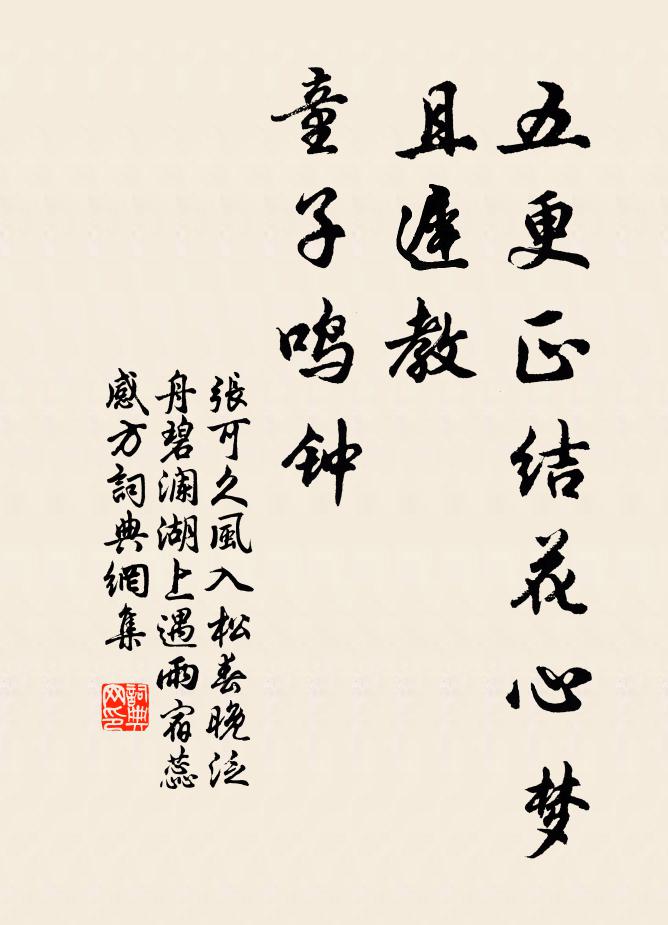 五更正结花心梦
且遲教
童子鸣钟
張可久風入松春晚泛
舟碧澜湖上遇雨宿蕊
感方詞典網集
詞典
网印